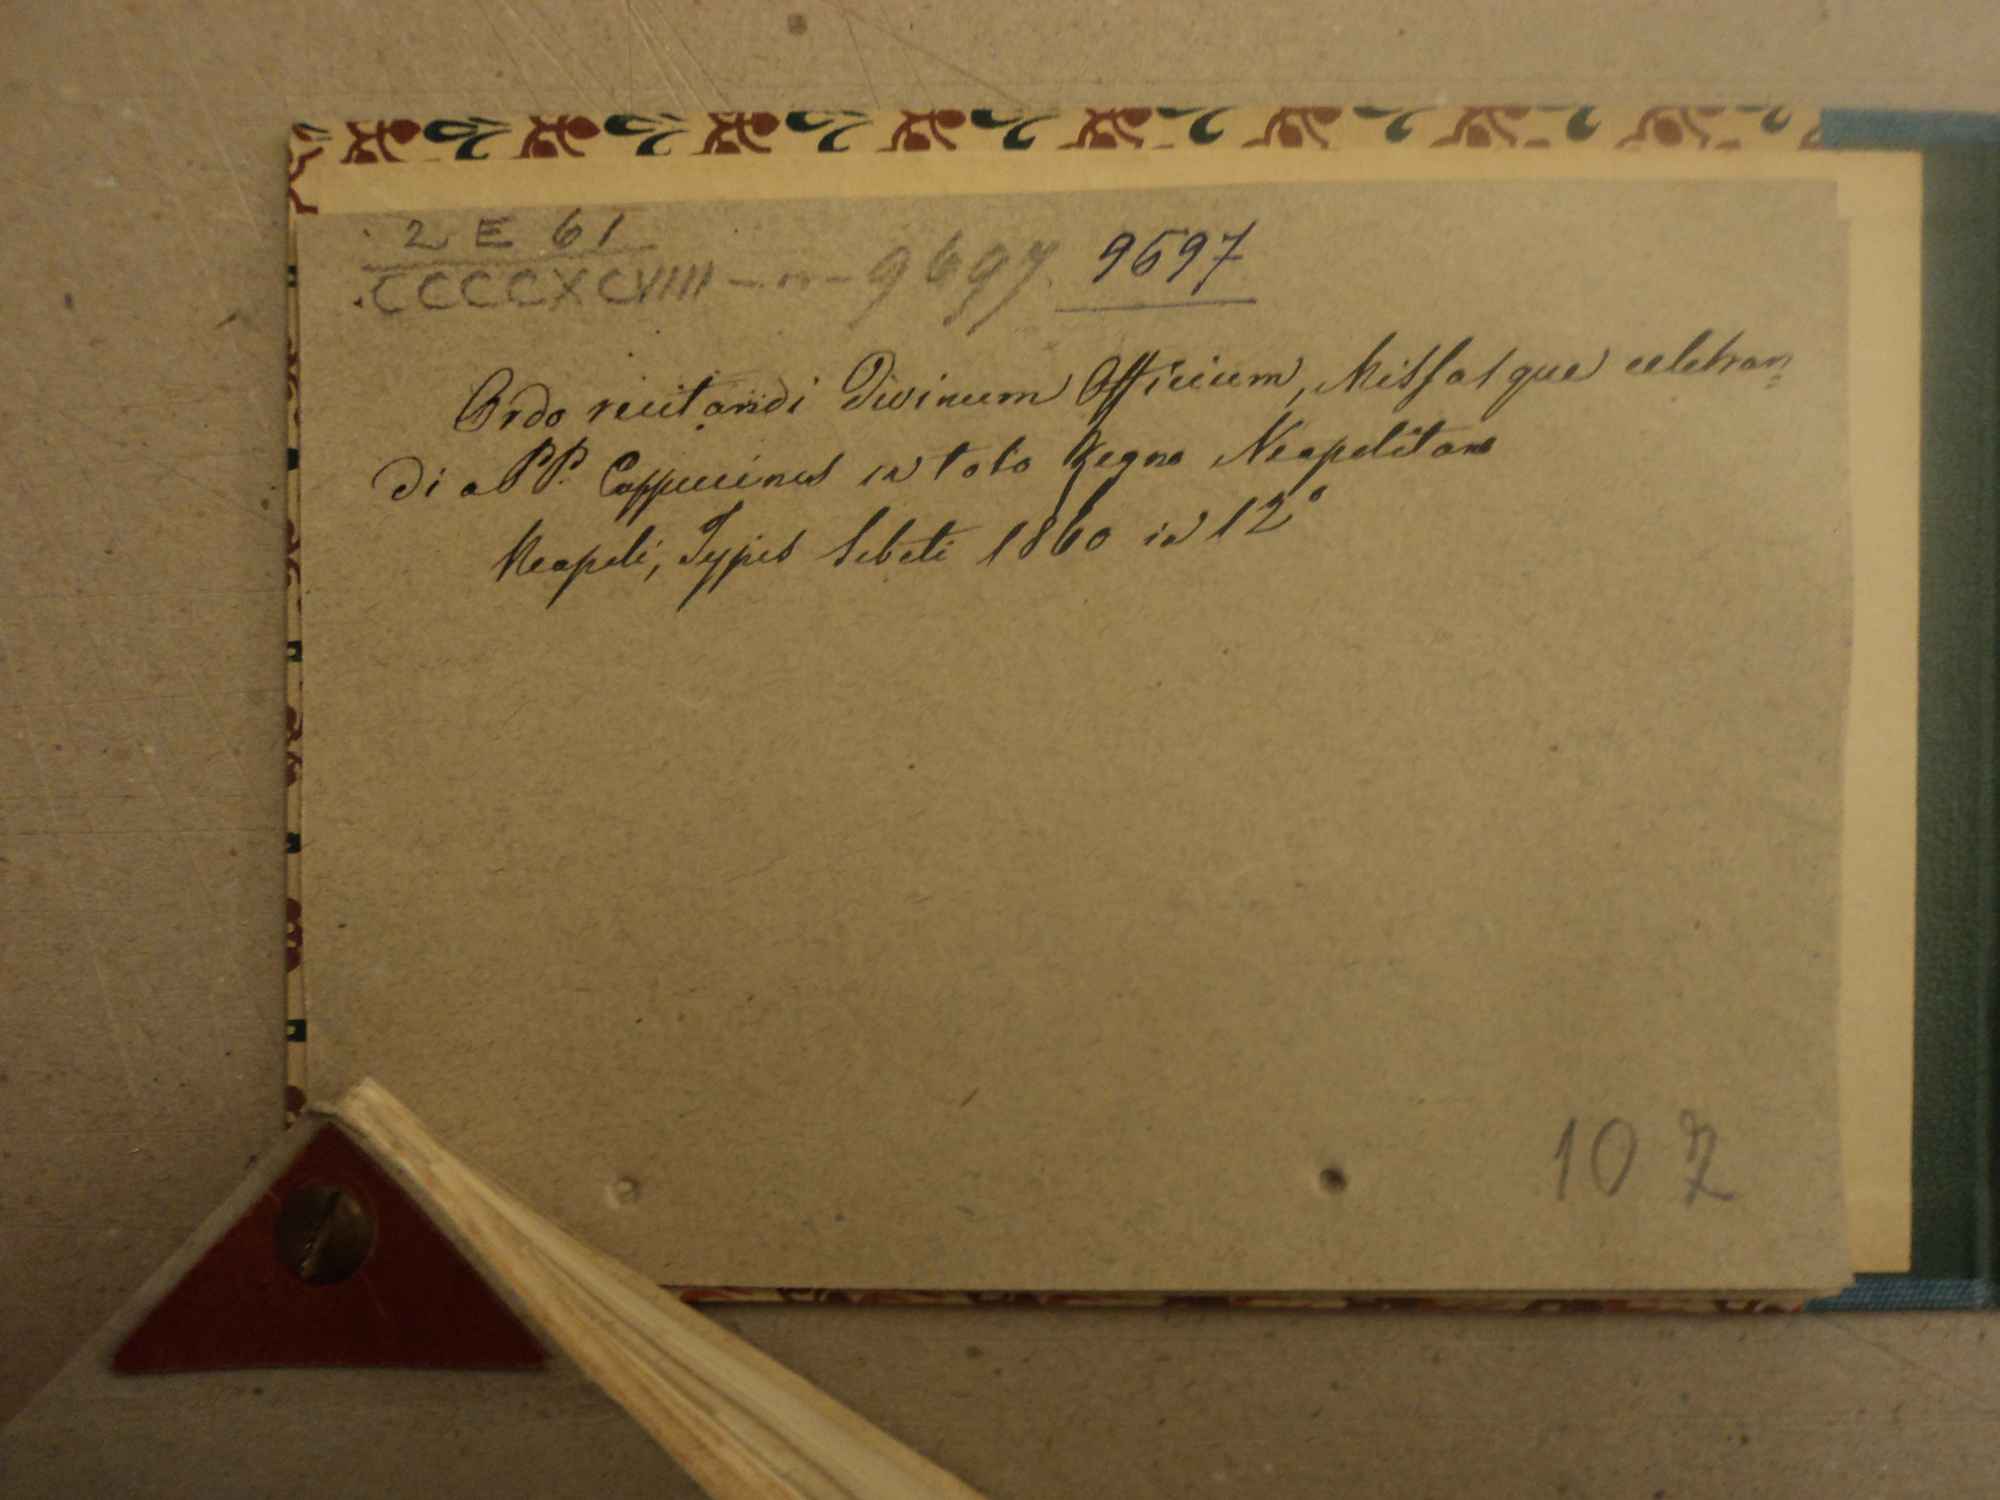 2 E 61
CCCCXCVIII - n - 9697 9697
Ordo recitandi Divinum Officium, Missasque celebran=
di a PP. Cappucinis in toto Regno Neapolitano
Neapoli, Typis Sebeti 1860 in 12°
10 2